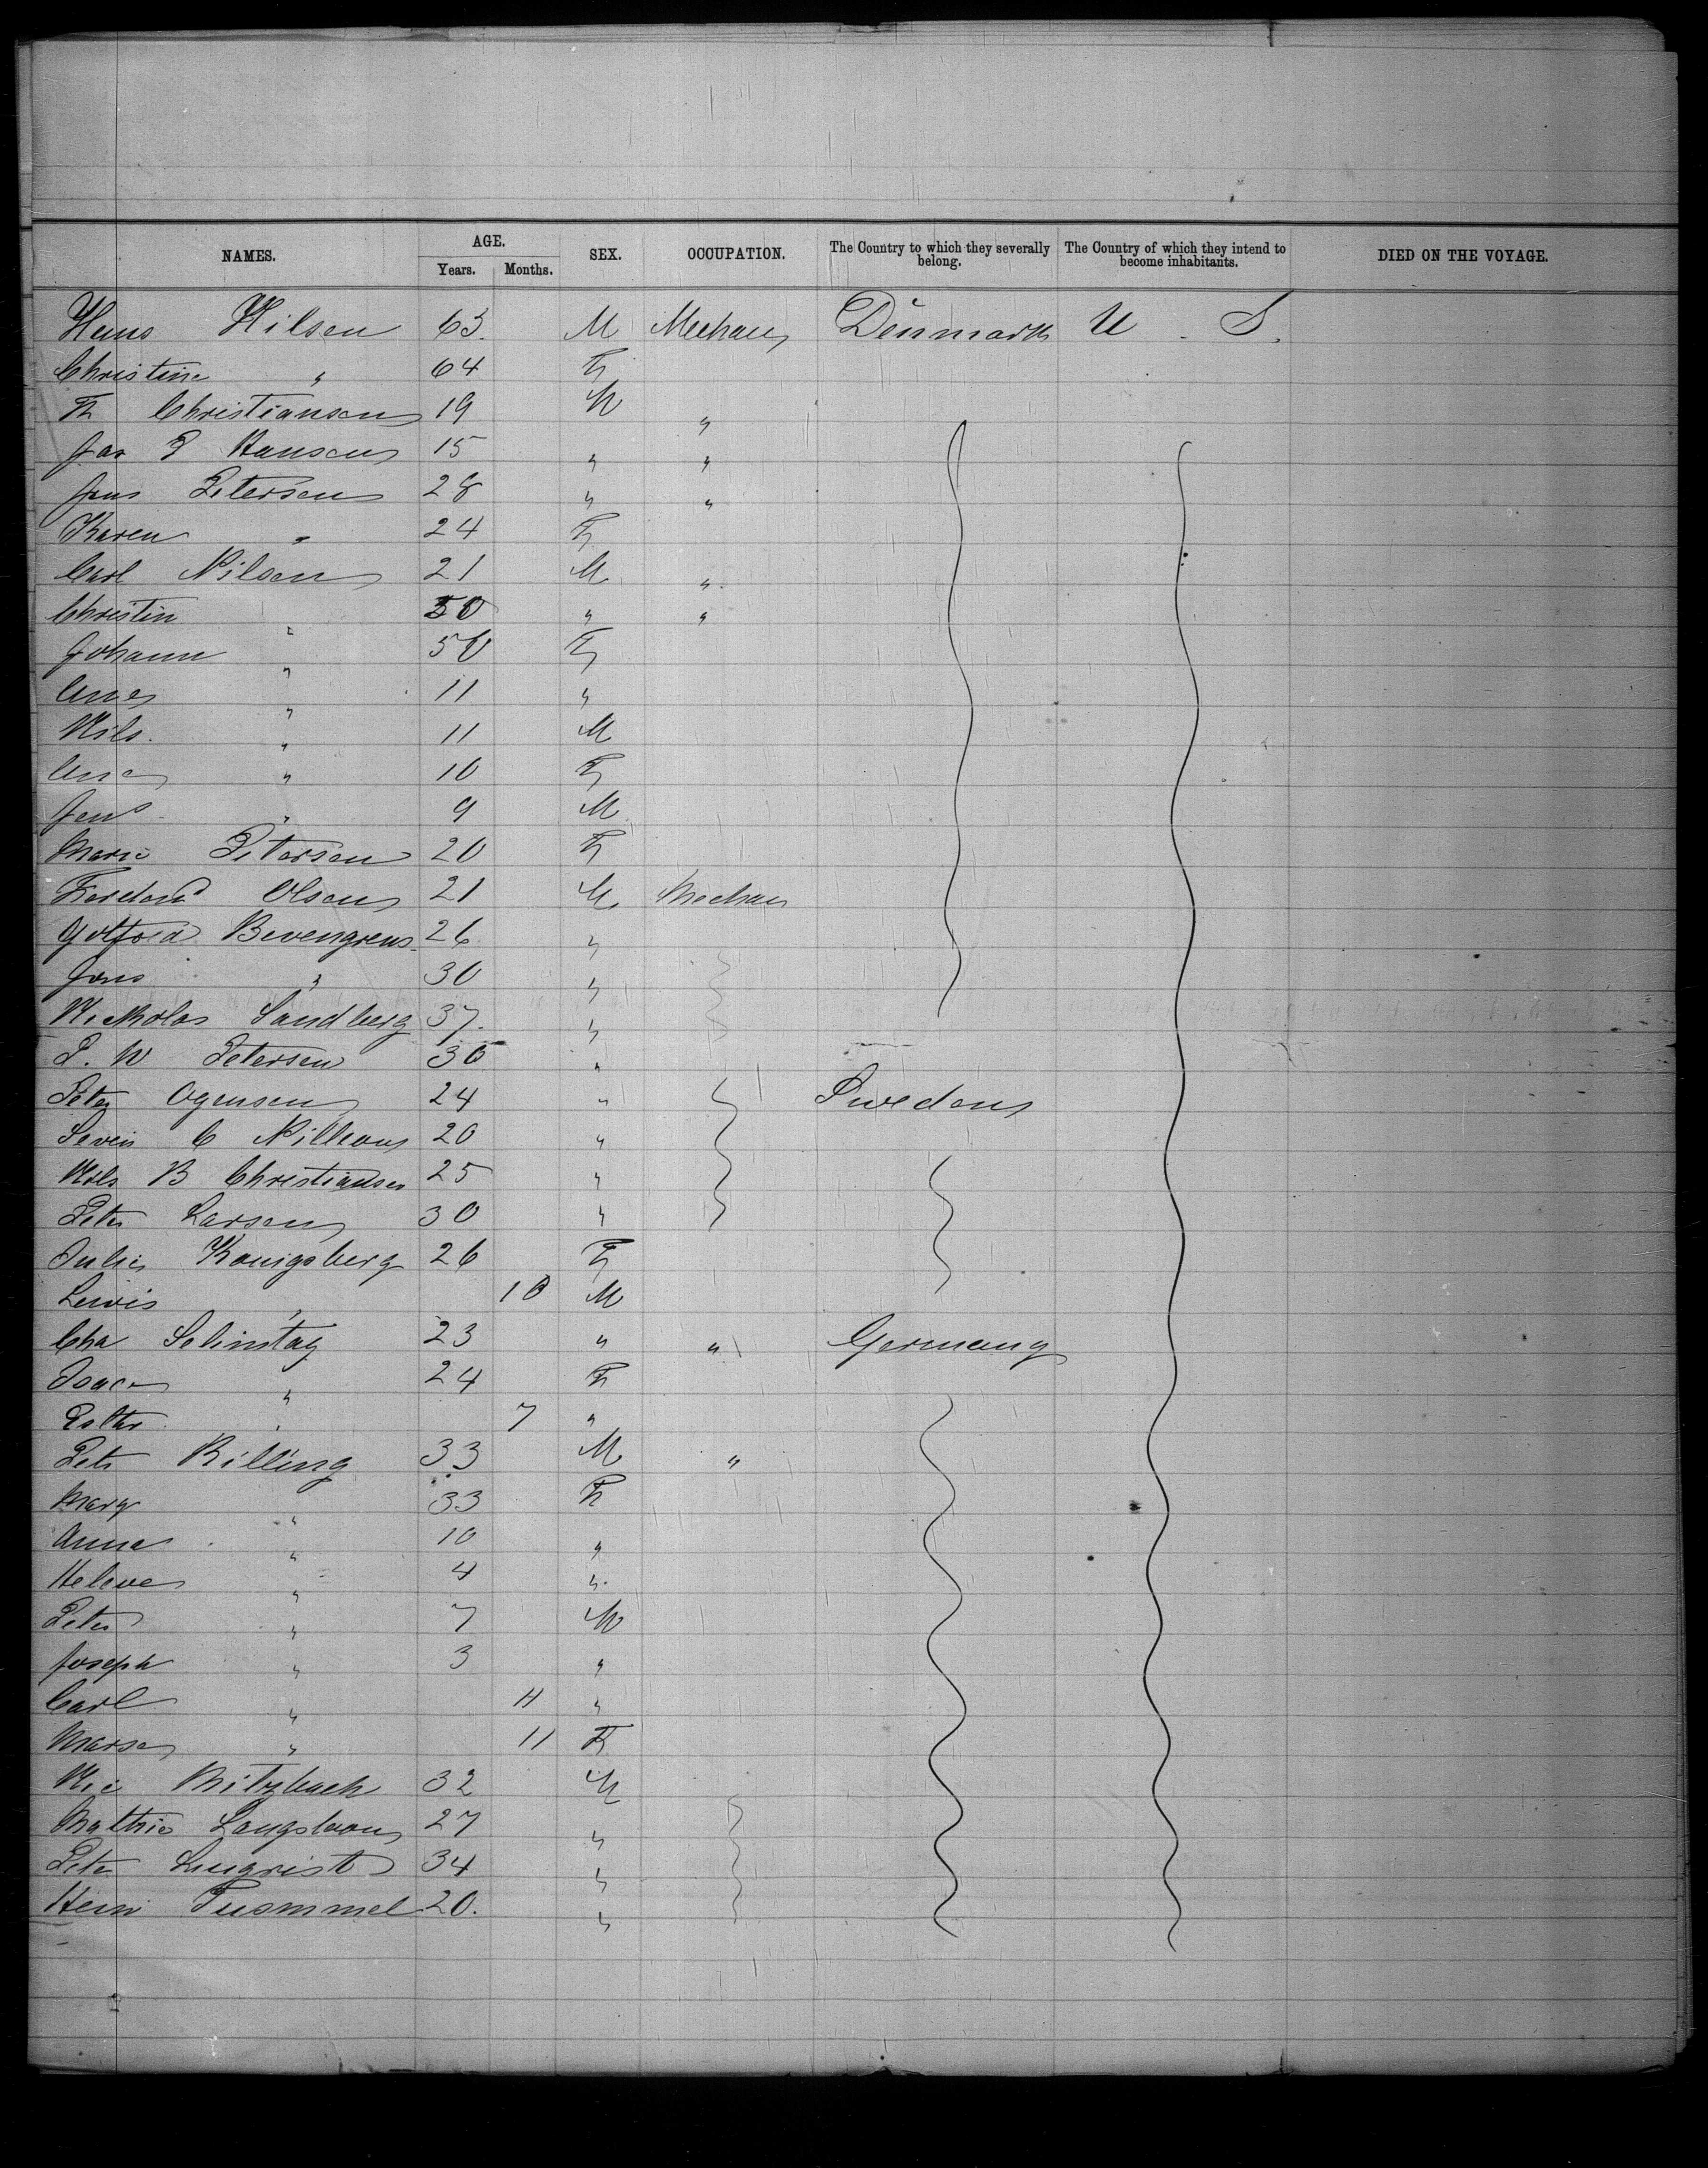 NAMES. AGE. Years. Months. SEX. OCCUPATION. The Country to which they severally belong. The Country of which they intend to become inhabitants. DIED ON THE VOYAGE.
Hans Nilsen 63. M Mechan Denmark U. S.
Christine " 64 F
Fr Christiansen 19 M "
Jas P Hansen 15 " "
Jens Petersen 28 " "
Karen " 24 F
Carl Nilsen 21 M "
Christin " 50 " "
Johann " 50 F
Anes " 11 "
Nils. " 11 M
Ana " 10 F
Jens " 9 M
Marie Petersen 20 F
Ferdend Olsen 21 M. Mechan
Gotfred Bevengrens 26 "
Jens " 30 "
Nickolas Sandberg 37. "
P. W Petersen 36 "
Peter Ogensen 24 " Sweden
Seven C Nilleons 20 "
Nils B Christiansen 25 "
Peter Larsen 30 "
Julia Konigsberg 26 F
Lewis " 10 M
Cha Selinstag 23 " " Germany
Isaac " 24 F
Esther " 7 "
Pete Billing 33 M "
Mary " 33 F
Anna " 10 "
Helene " 4 "
Peter " 7 M
Joseph " 3 "
Carl " 11 "
Marse " 11 F
Nic Mitzbach 32 M
Mathis 27 "
Pete Linqrist 34 "
Hein 20. "